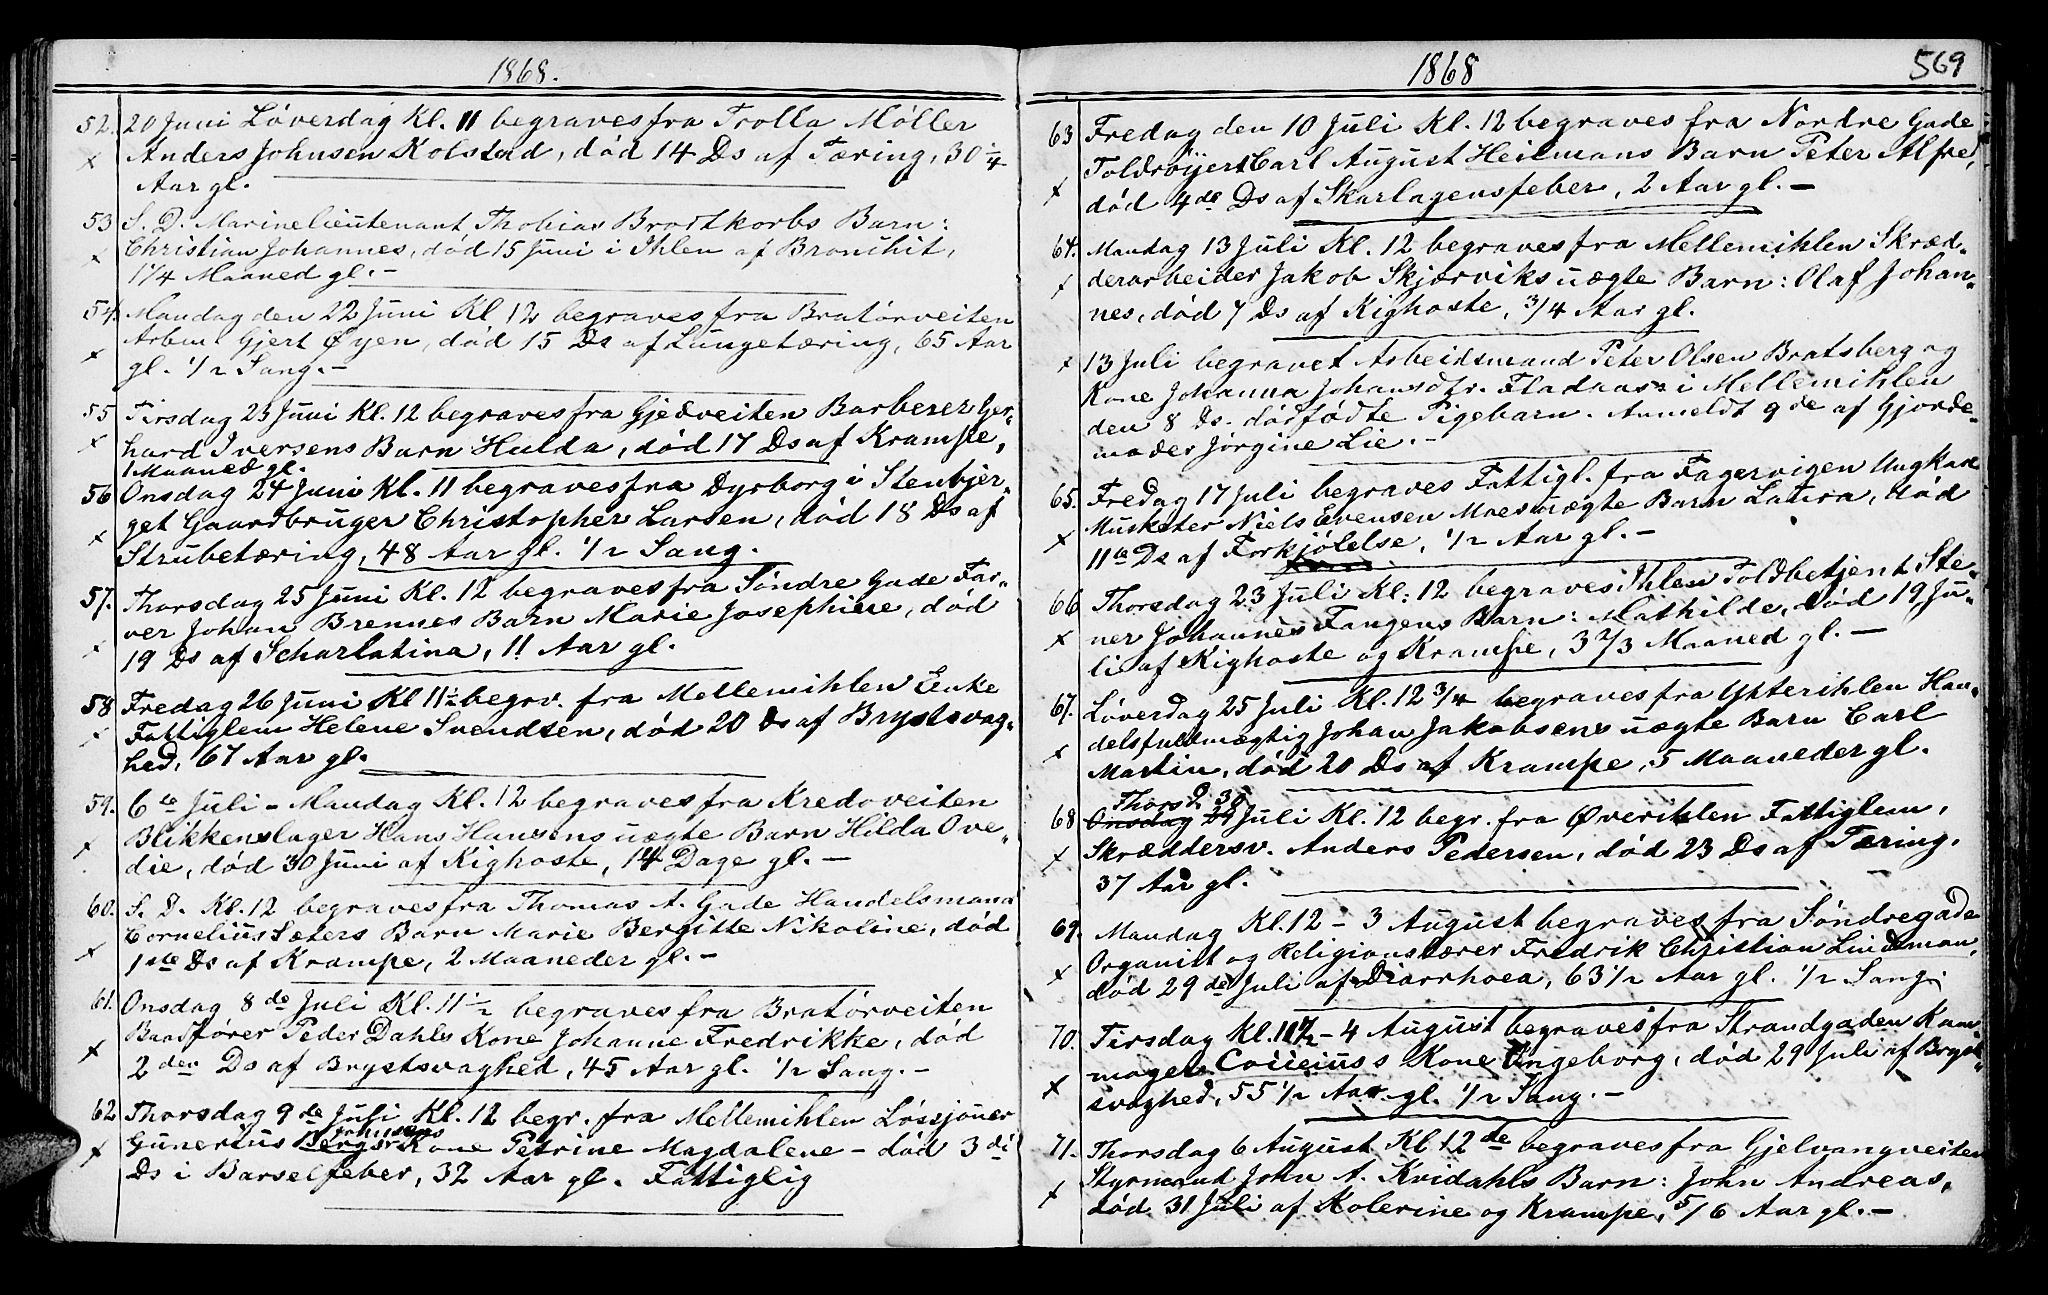 1868.
52. 20 Juni Løverdag Kl. 11 begraves fra Trolla Møller
x Anders Johnsen Kolstad, død 14 Ds af Tæring, 30 1/4
Aar gl.
53 S. D. Marinelieutenant Thobias Brodtkorbs Barn:
x Christian Johannes, død 15 Juni i Ihlen af Bronihit,
1 1/4 Maaned gl. –
54. Mandag den 22 Juni Kl 12 begraves fra Bratørveiten
x Arbm. Gjert Øyen, død 15 Ds af Lungetæring, 65 Aar
gl. 1/2 Sang. –
55 Tirsdag 23 Juni Kl. 12 begraves fra Gjedveiten Barberer Ger-
x hard Iversens Barn Hulda, død 17 Ds af Krampe,
1 Maaned gl.
56 Onsdag 24 Juni Kl. 11 begraves fra Dyrborg i Stenbjer-
get Gaardbruger Christopher Larsen, død 18 Ds af
x Strubetæring, 48 Aar gl. 1/2 Sang.
57. Thorsdag 25 Juni Kl. 12 begraves fra Søndre Gade Far-
ver Johan Brennes Barn Marie Josephine, død
x 19 Ds af Scharlatina, 11 Aar gl.
58 Fredag 26 Juni Kl 11 1/2 begrv. fra Mellemihlen Enke
x Fattiglem Helene Svendsen, død 20 Ds af Brystsvag-
hed, 67 Aar gl.
59. 6te Juli – Mandag Kl. 12 begraves fra Kredoveiten
x Blikkenslager Hans Hansens uægte Barn Hilda Ove-
die, død 30 Juni af Kighoste, 14 Dage gl. –
60. S. D. Kl. 12 begraves fra Thomas A. Gade Handelsmand
Cornelius Sæters Barn Marie Bergitte Nikoline, død
x 1ste Ds af Krampe, 2 Maaneder gl. –
61. Onsdag 8de Juli Kl. 11 1/2 begraves fra Bratørveiten
Baadfører Peder Dahls Kone Johanne Fredrikke, død
x 2den Ds af Brystsvaghed, 45 Aar gl. 1/2 Sang. –
62 Thorsdag 9de Juli Kl. 12 begr. fra Mellemihlen Løssjouer
Johnsens
x Gunerius Bergs Kone Petrine Magdalene – død 3di
Ds i Barselfeber, 32 Aar gl. Fattiglig
1868
569
63 Fredag den 10 Juli Kl. 12 begraves fra Nordre Gade
Toldrorjert Carl August Heilmans Barn Peter Alfred,
x død 4de Ds af Skarlagensfeber, 2 Aar gl. –
64. Mandag 13 Juli Kl. 12 begraves fra Mellemihlen Skræd-
x derarbeider Jakob Skjærviks uægte Barn: Olaf Johan-
nes, død 7 Ds af Kighoste, 3/4 Aar gl.
x 13 Juli begravet Arbeidsmand Peter Olsen Bratsberg og
Kone Johanna Johansdtr. Fladaas i Mellemihlen
den 8 Ds. dødfødte Pigebarn. Anmeldt 9de af Gjorde-
moder Jørgine Lie. –
65. Fredag 17 Juli begraves Fattigl. fra Fagervigen Ungkarl
Musketer Niels Evensen Moes uægte Barn Laura, død
x 11te Ds af Forkjølelse, 1/2 Aar gl. –
66 Thorsdag 23 Juli Kl: 12 begraves i Ihlen Toldbetjent Ste-
x ner Johannes Fangens Barn: Mathilde, død 19 Ju-
li af Kighoste og Krampe, 3 2/3 Maaned gl. –
67. Løverdag 25 Juli Kl. 12 3/4 begraves fra Ytterihlen Han-
delsfuldmægtig Johan Jakobsens uægte Barn Carl
x Martin, død 20 Ds af Krampe, 5 Maaneder gl.
Thorsd. 30
68 Onsdag 29 Juli Kl. 12 begr. fra Øverihlen Fattiglem,
x Skræddersv. Anders Pedersen, død 23 Ds af Tæring.
37 Aar gl.
69. Mandag Kl. 12 – 3 August begraves fra Søndregade
x Organist og Religionslærer Fredrik Christian Lindeman,
død 29de Juli af Diarrhoea, 63 1/2 Aar gl. 1/2 Sang.
70. Tirsdag Kl. 11 1/2 – 4 August begraves fra Strandgaden Kam-
mager Cocceius's Kone Ingeborg, død 29 Juli af Bryst-
x svaghed, 55 1/2 Aar gl. 1/2 Sang. –
71. Thorsdag 6 August Kl 12 de begraves fra Gjelvangveiten
Styrmand John A. Kvidahls Barn: John Andreas,
x død 31 Juli af Kolerine og Krampe, 5/6 Aar gl. –